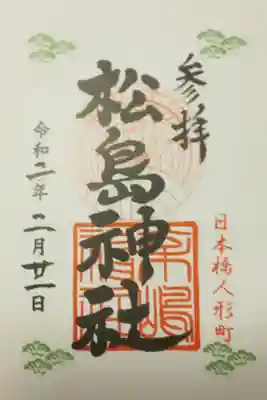 参拝
日本橋人形町
松島神社
令和二年
二月廿一日